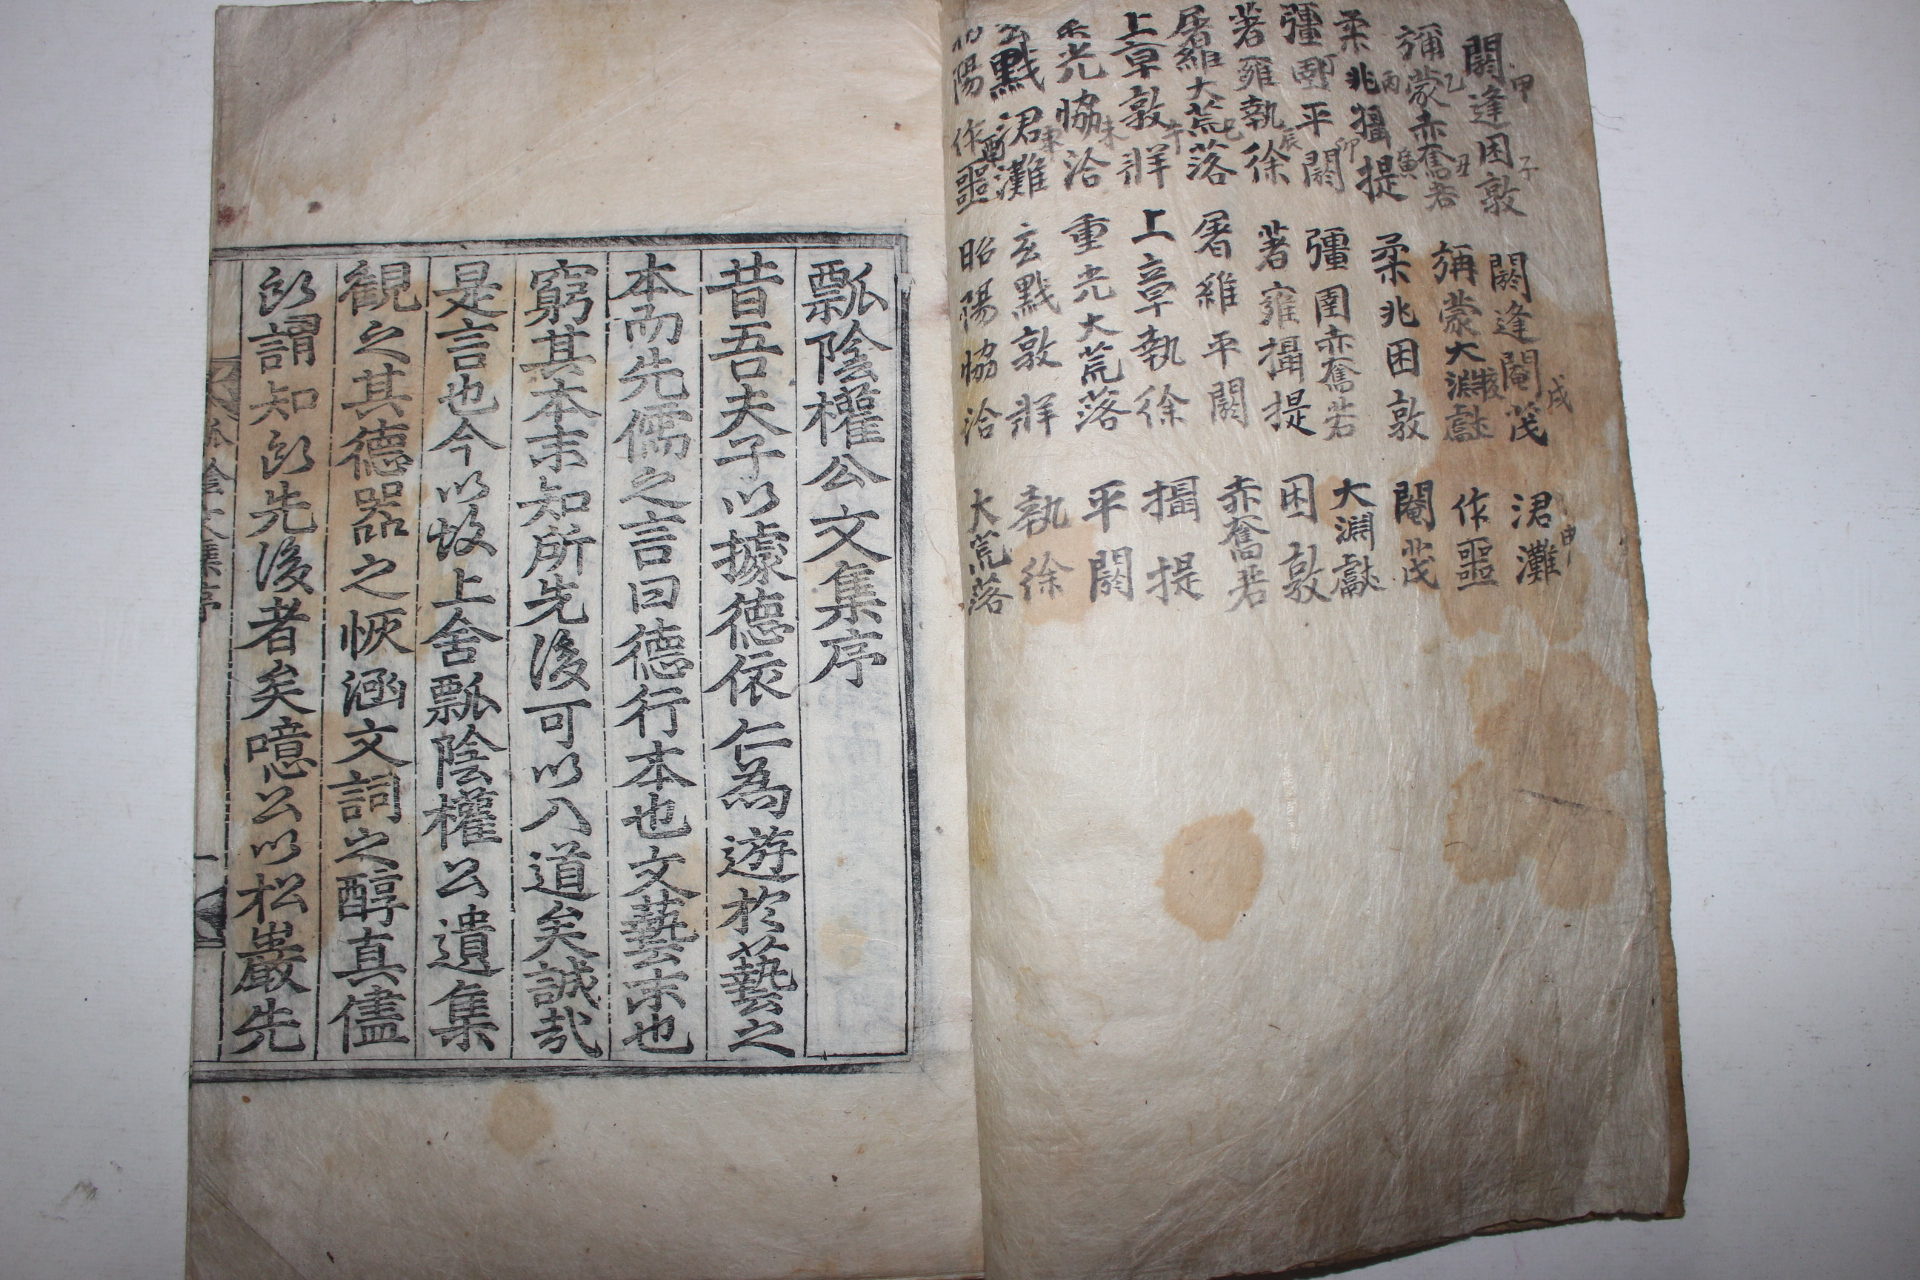 閼逢困敦
甲子
彌蒙赤奮若
乙丑
柔兆攝提
丙寅
彊圉平閼
卯
著雍執徐
辰
屠維大荒落
巳
上章敦牂
午
光協洽
未
黓涒灘
陽作噩
酉
閼逢閹茂
戌
彌蒙大淵獻
柔兆困敦
彊圉赤奮若
著雍攝提
屠維平閼
上章執徐
重光大荒落
玄黓敦牂
昭陽協洽
涒灘
申
作噩
閹茂
大淵獻
困敦
赤奮若
攝提
平閼
執徐
大荒落
瓢陰權公文集序
昔吾夫子以據德依仁為遊於藝之
本而先儒之言曰德行本也文藝末也
窮其本末知所先後可以入道矣誠哉
是言也今以故上舍瓢陰權公遺集
観之其德器之恢涵文詞之醇真儘
所謂知所先後者矣噫公以松巖先
陰文集序
一